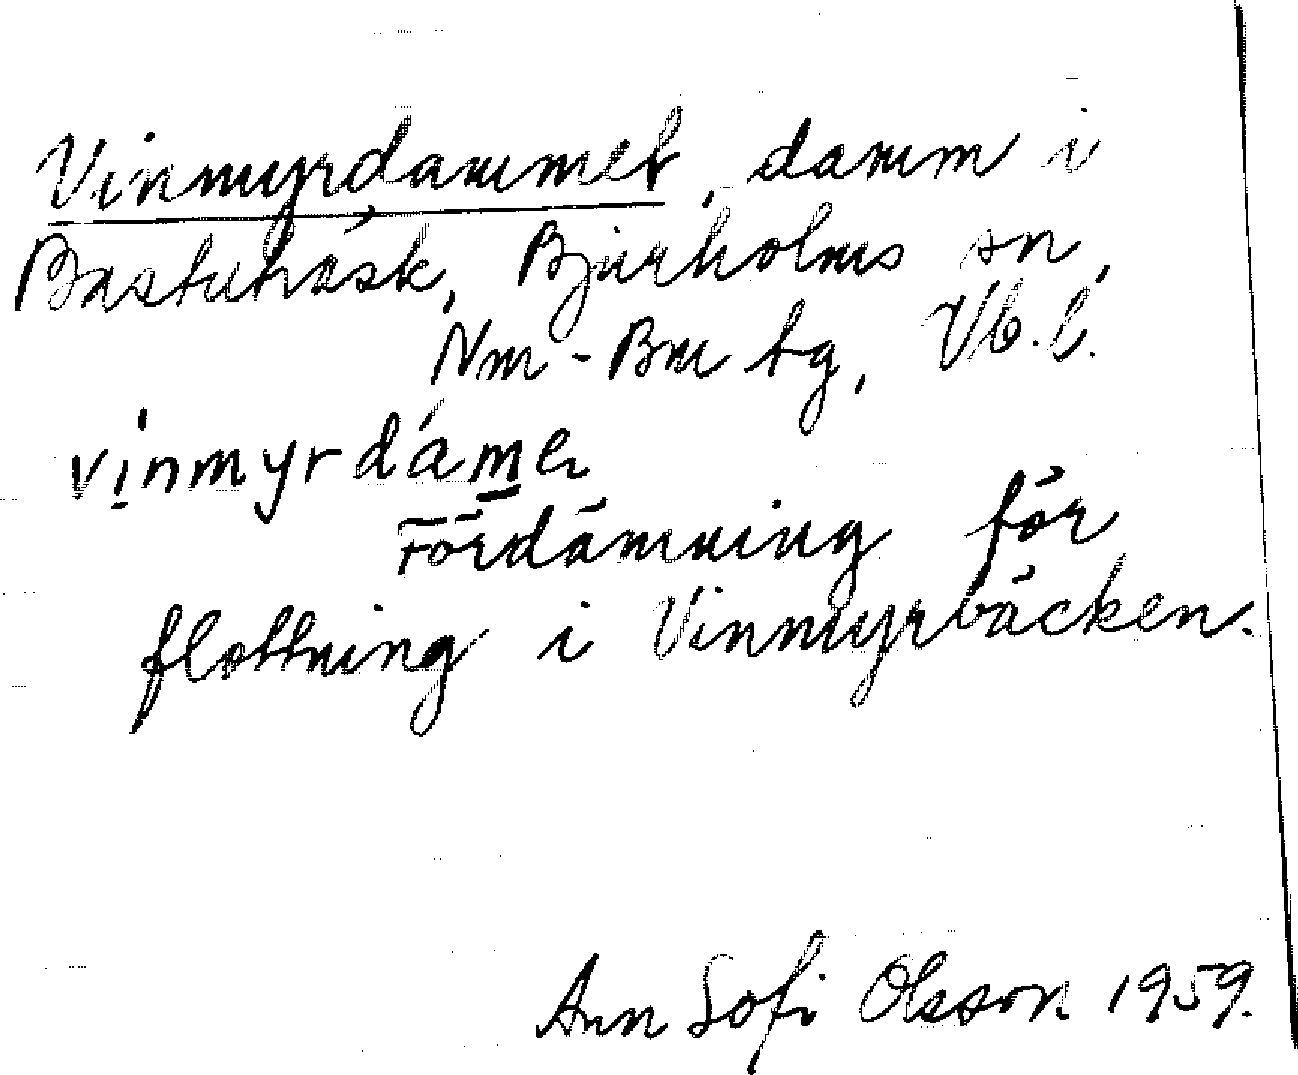 Vinmyrdammet, damm i
Bastuträsk, Bjurholms sn,
Nm-Bm tg, Vb. l.
vinmyrdáme
Fördämning för
flottning i Vinmyrbäcken.
Ann Sofi Olsson 1959.